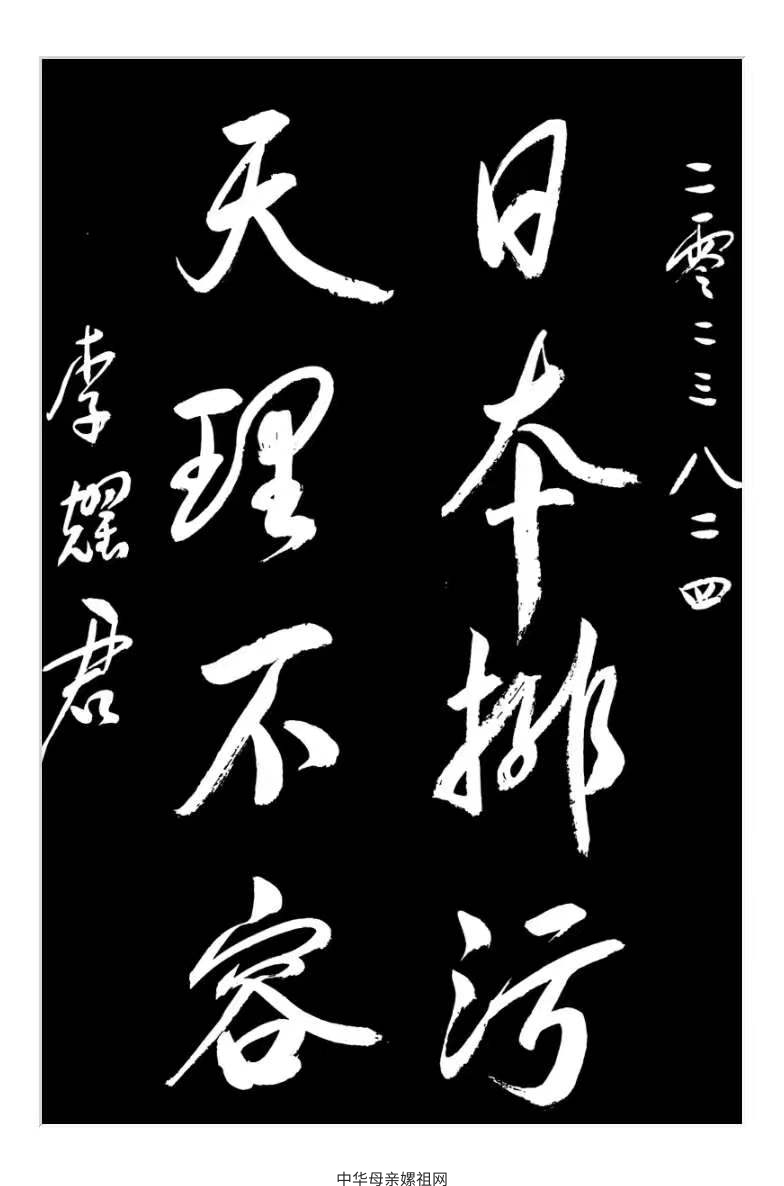 二零二三八二四
日本排污
天理不容
李耀君
中华母亲嫘祖网